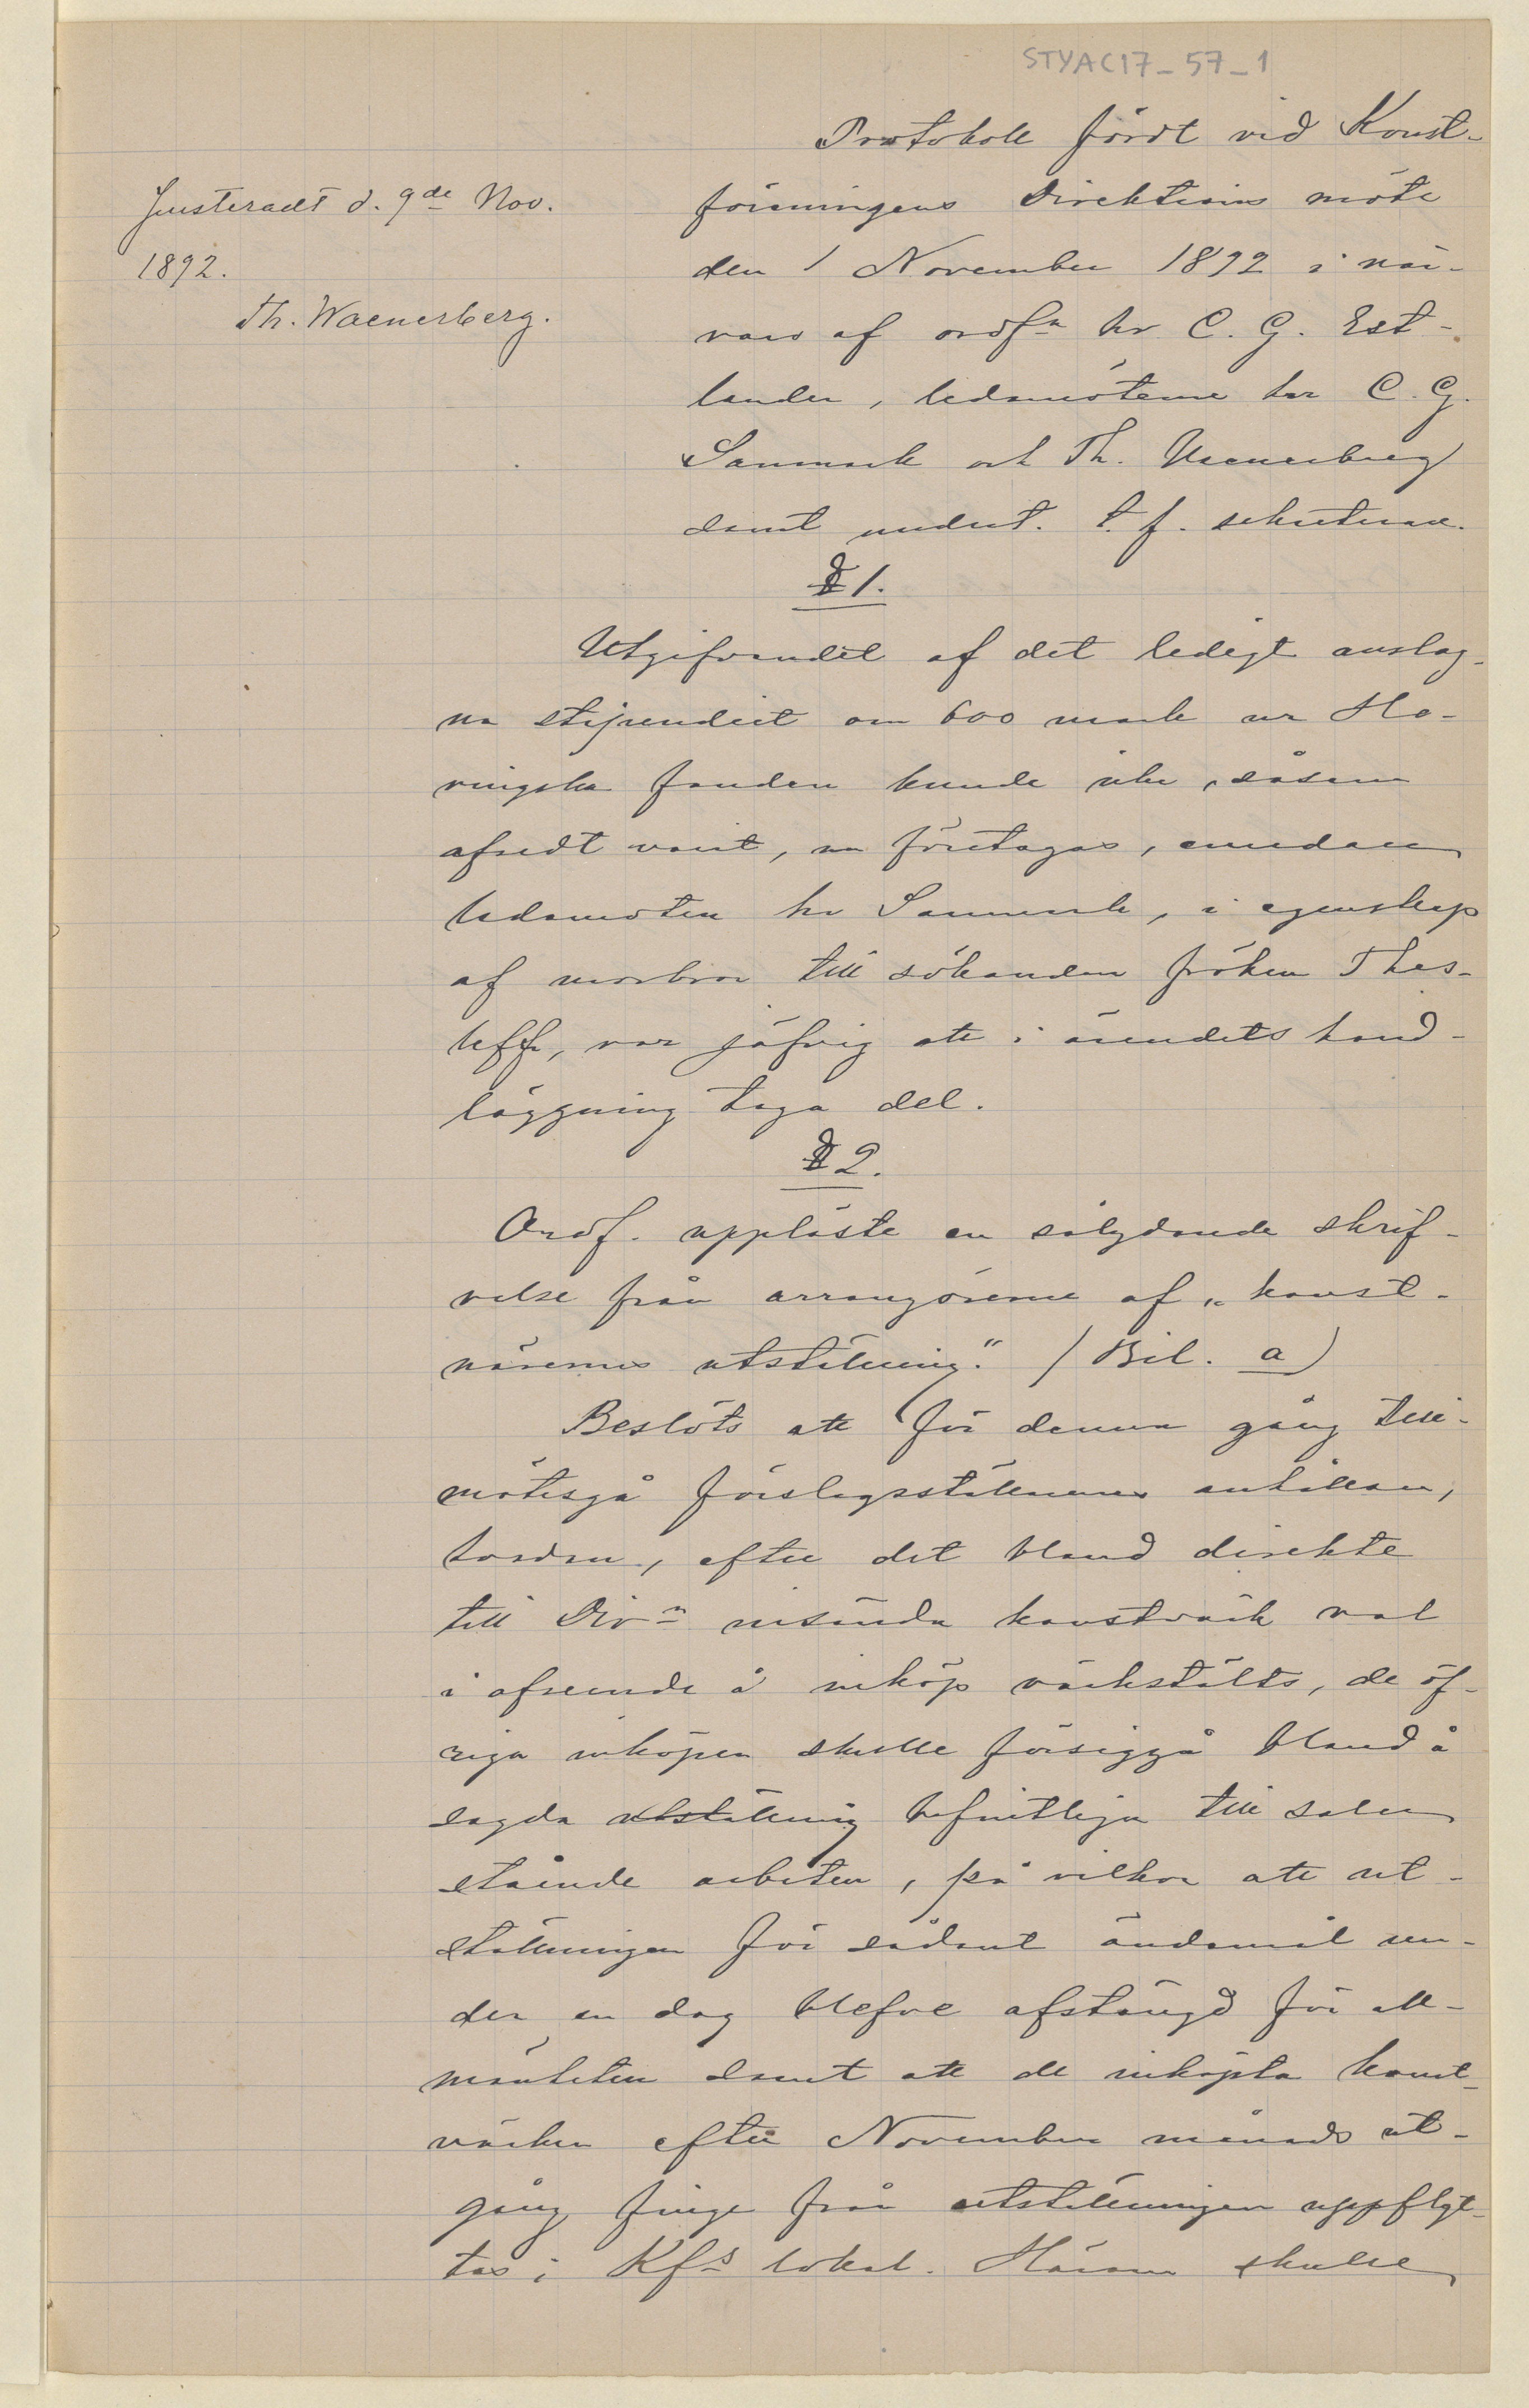 STYAC17_57_1
Protokoll fördt vid Konst-
föreningens Direktions möte
den 1 November 1892 i när-
varo af ordfn hr C. G. Est-
lander, ledamöterne hrr C. G.
Sanmark och Th. Waenerberg
samt undert. t. f. sekreterare.
Justeradt d. 9de Nov.
1892.
Th. Waenerberg.
§ 1.
Utgifvandet af det ledigt anslag-
na stipendiet om 600 mark ur Ho-
vingska fonden kunde icke, såsom
afsedt varit, nu företagas, emedan
ledamoten hr Sanmark, i egenskap
af morbror till sökanden fröken Thes-
leff, var jäfvig att i ärendets hand-
läggning taga del.
§ 2.
Ordf. uppläste en sålydande skrif-
velse från arrangörerne af „konst-
närernes utställning." (Bil. a)
Beslöts att för denna gång till-
mötesgå förslagsställarnes anhållan,
hvadan, efter det bland direkte
till Dirn insända konstvärk val
i afseende å inköp värkstälts, de öf-
riga inköpen skulle försiggå bland å
sagda utställning befintliga till salu
stående arbeten, på vilkor att ut-
ställningen för sådant ändamål un-
der en dag blefve afstängd för all-
mänheten samt att de inköpta konst-
värken efter November månads ut-
gång finge från utställningen uppflyt-
tas i Kfs lokal. Härom skulle